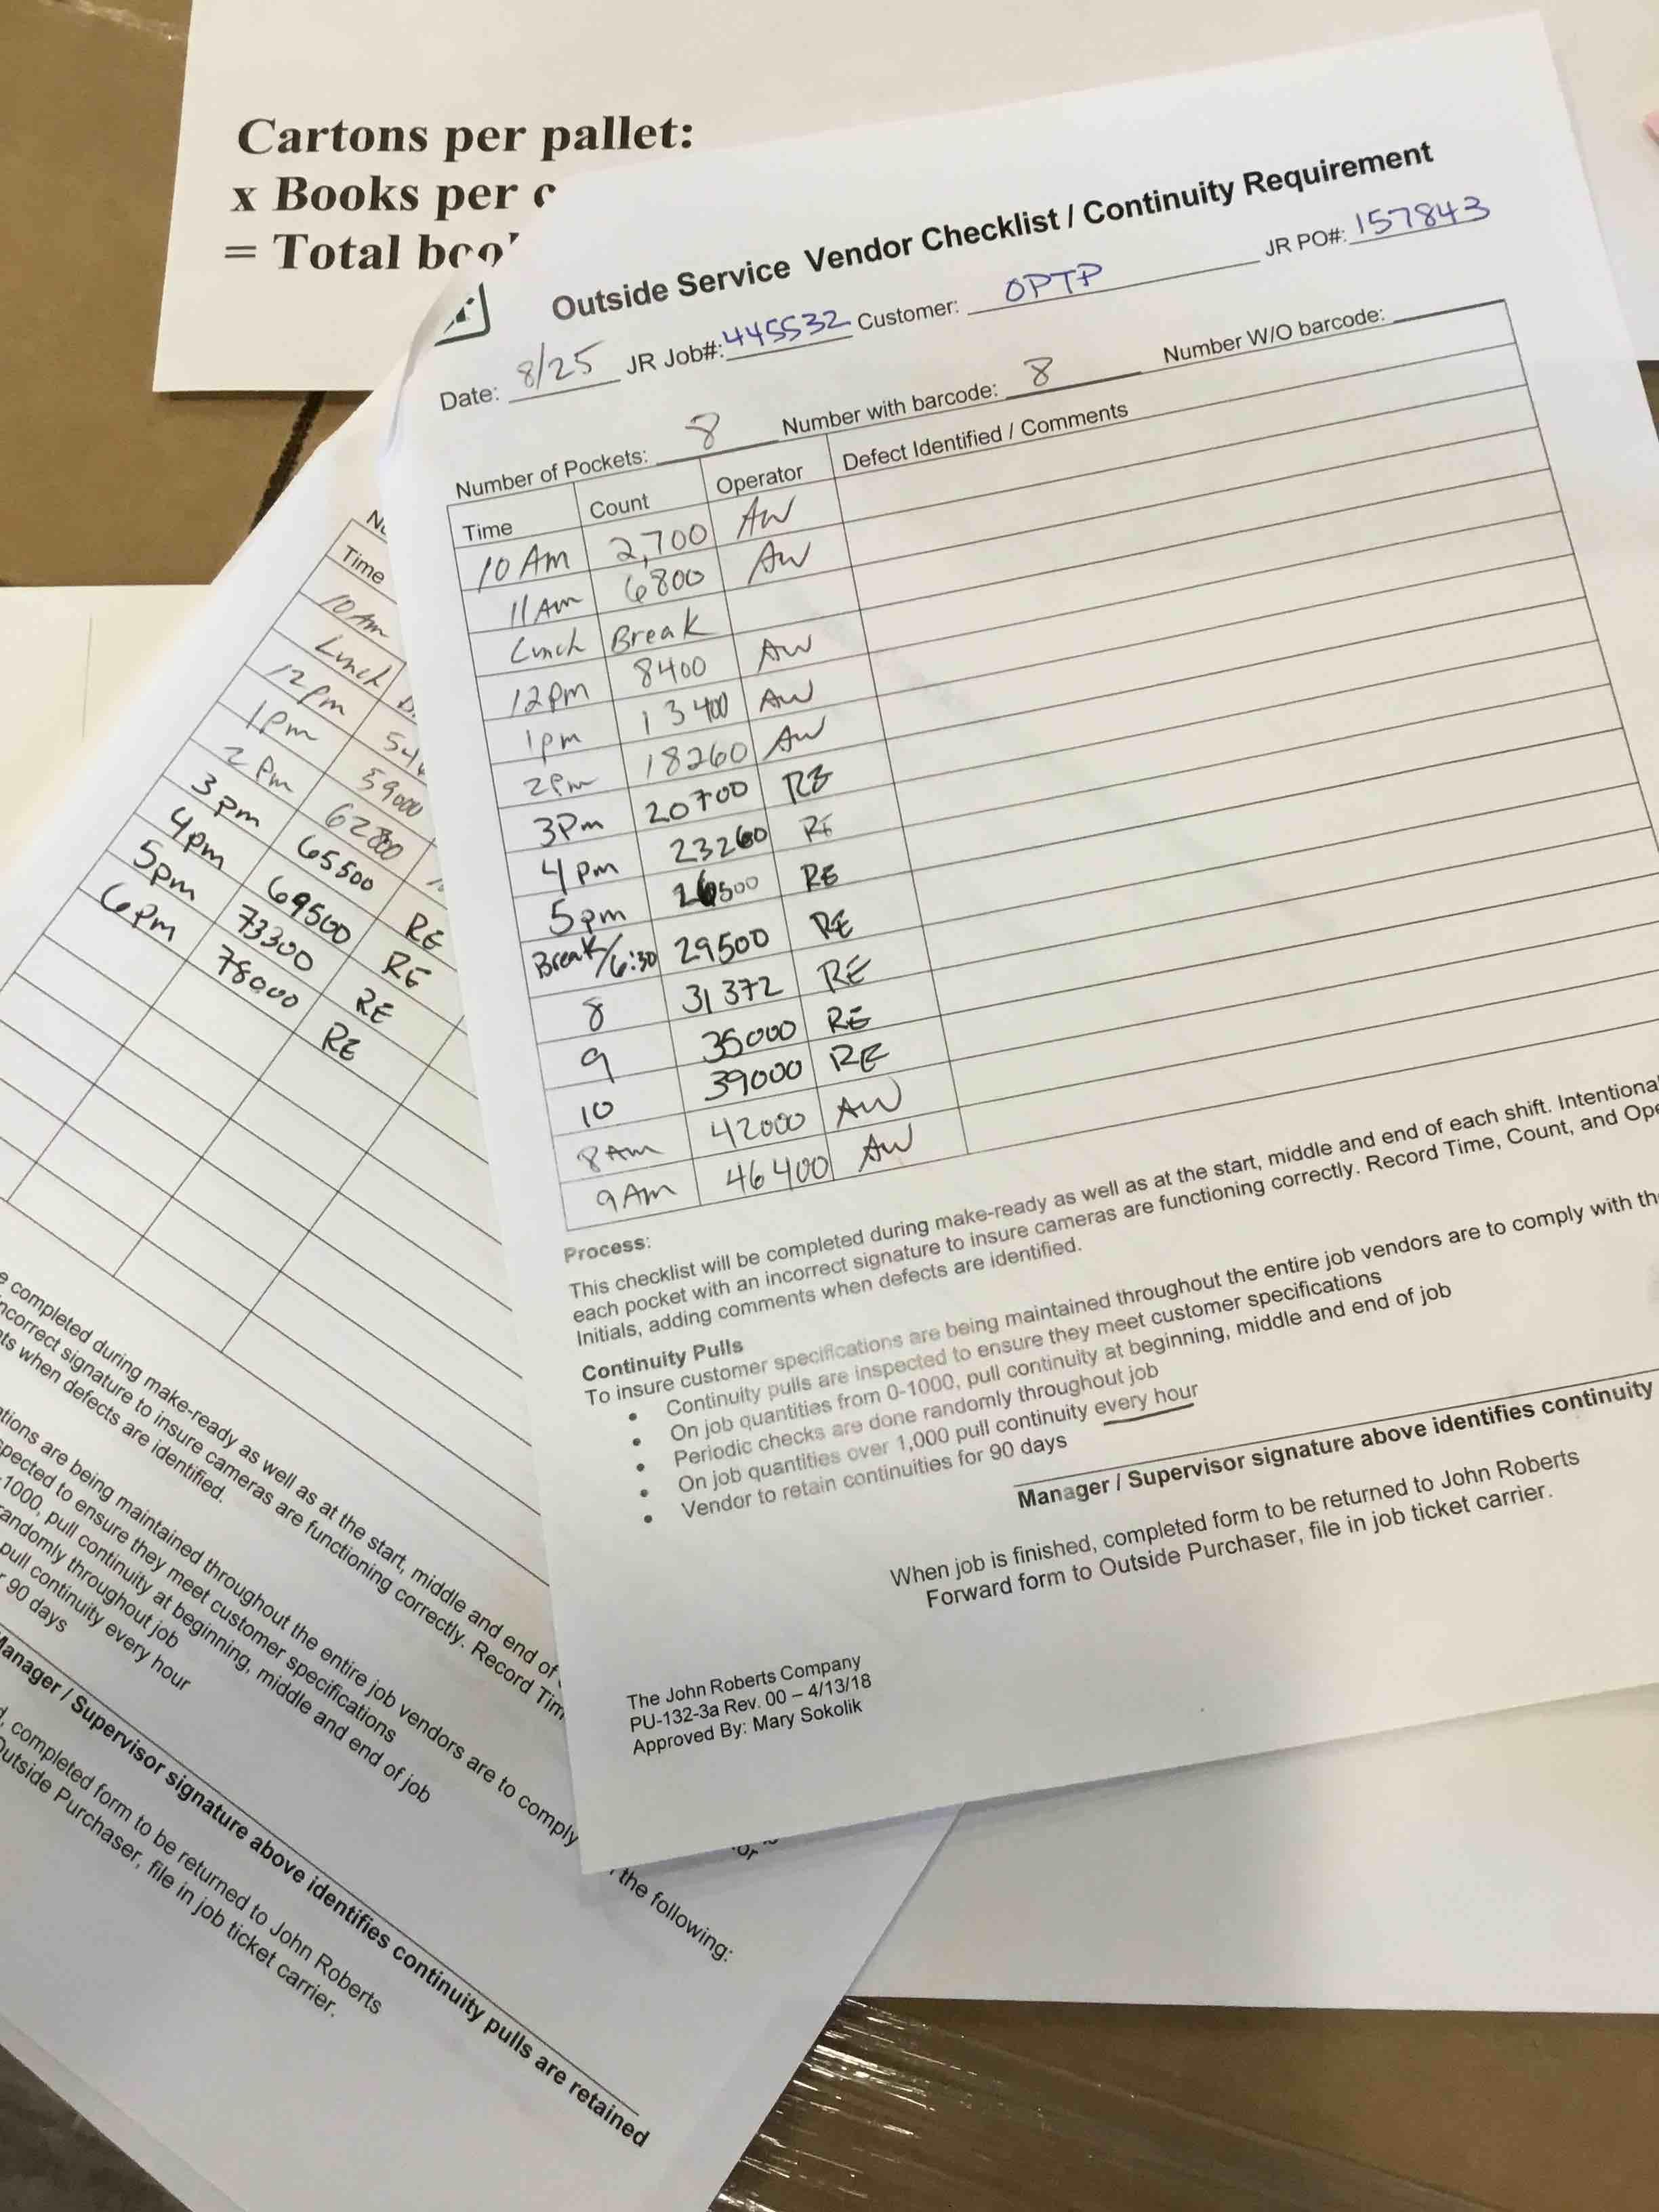 Cartons per pallet:
x Books per
= Total
Outside Service Vendor Checklist / Continuity Requirement
Date: 8/25 JR Job#: 445532 Customer: OPTP JR PO#: 157843
Number of Pockets: 8 Number with barcode: 8 Number W/O barcode:
Time Count Operator Defect Identified / Comments
10 Am 2,700 AW
11 Am 6800 AW
Lunch Break
12pm 8400 AW
1pm 13400 AW
2pm 18260 AW
3Pm 20700 RE
4pm 23260 RE
5pm 26500 RE
Break/6:30 29500 RE
8 31372 RE
9 35000 RE
10 39000 RE
8 Am 42000 AW
9 Am 46400 AW
Process:
This checklist will be completed during make-ready as well as at the start, middle and end of each shift. Intentional
each pocket with an incorrect signature to insure cameras are functioning correctly. Record Time, Count, and Ope
Initials, adding comments when defects are identified.
Continuity Pulls
To insure customer specifications are being maintained throughout the entire job vendors are to comply with th
• Continuity pulls are inspected to ensure they meet customer specifications
• On job quantities from 0-1000, pull continuity at beginning, middle and end of job
• Periodic checks are done randomly throughout job
• On job quantities over 1,000 pull continuity every hour
• Vendor to retain continuities for 90 days
Manager / Supervisor signature above identifies continuity
When job is finished, completed form to be returned to John Roberts
Forward form to Outside Purchaser, file in job ticket carrier.
The John Roberts Company
PU-132-3a Rev. 00 – 4/13/18
Approved By: Mary Sokolik
Time
10 Am
Lunch
12pm
1pm 59000
2 Pm
3 pm 65500
4pm 69500 RE
5pm 73300 RE
6Pm 78000 RE
RE
e completed during make-ready as well as at the start, middle and end of
ncorrect signature to insure cameras are functioning correctly. Record Tim
ts when defects are identified.
tions are being maintained throughout the entire job vendors are to comply
the following:
spected to ensure they meet customer specifications
1000, pull continuity at beginning, middle and end of job
andomly throughout job
pull continuity every hour
90 days
Manager / Supervisor signature above identifies continuity pulls are retained
d, completed form to be returned to John Roberts
Outside Purchaser, file in job ticket carrier.